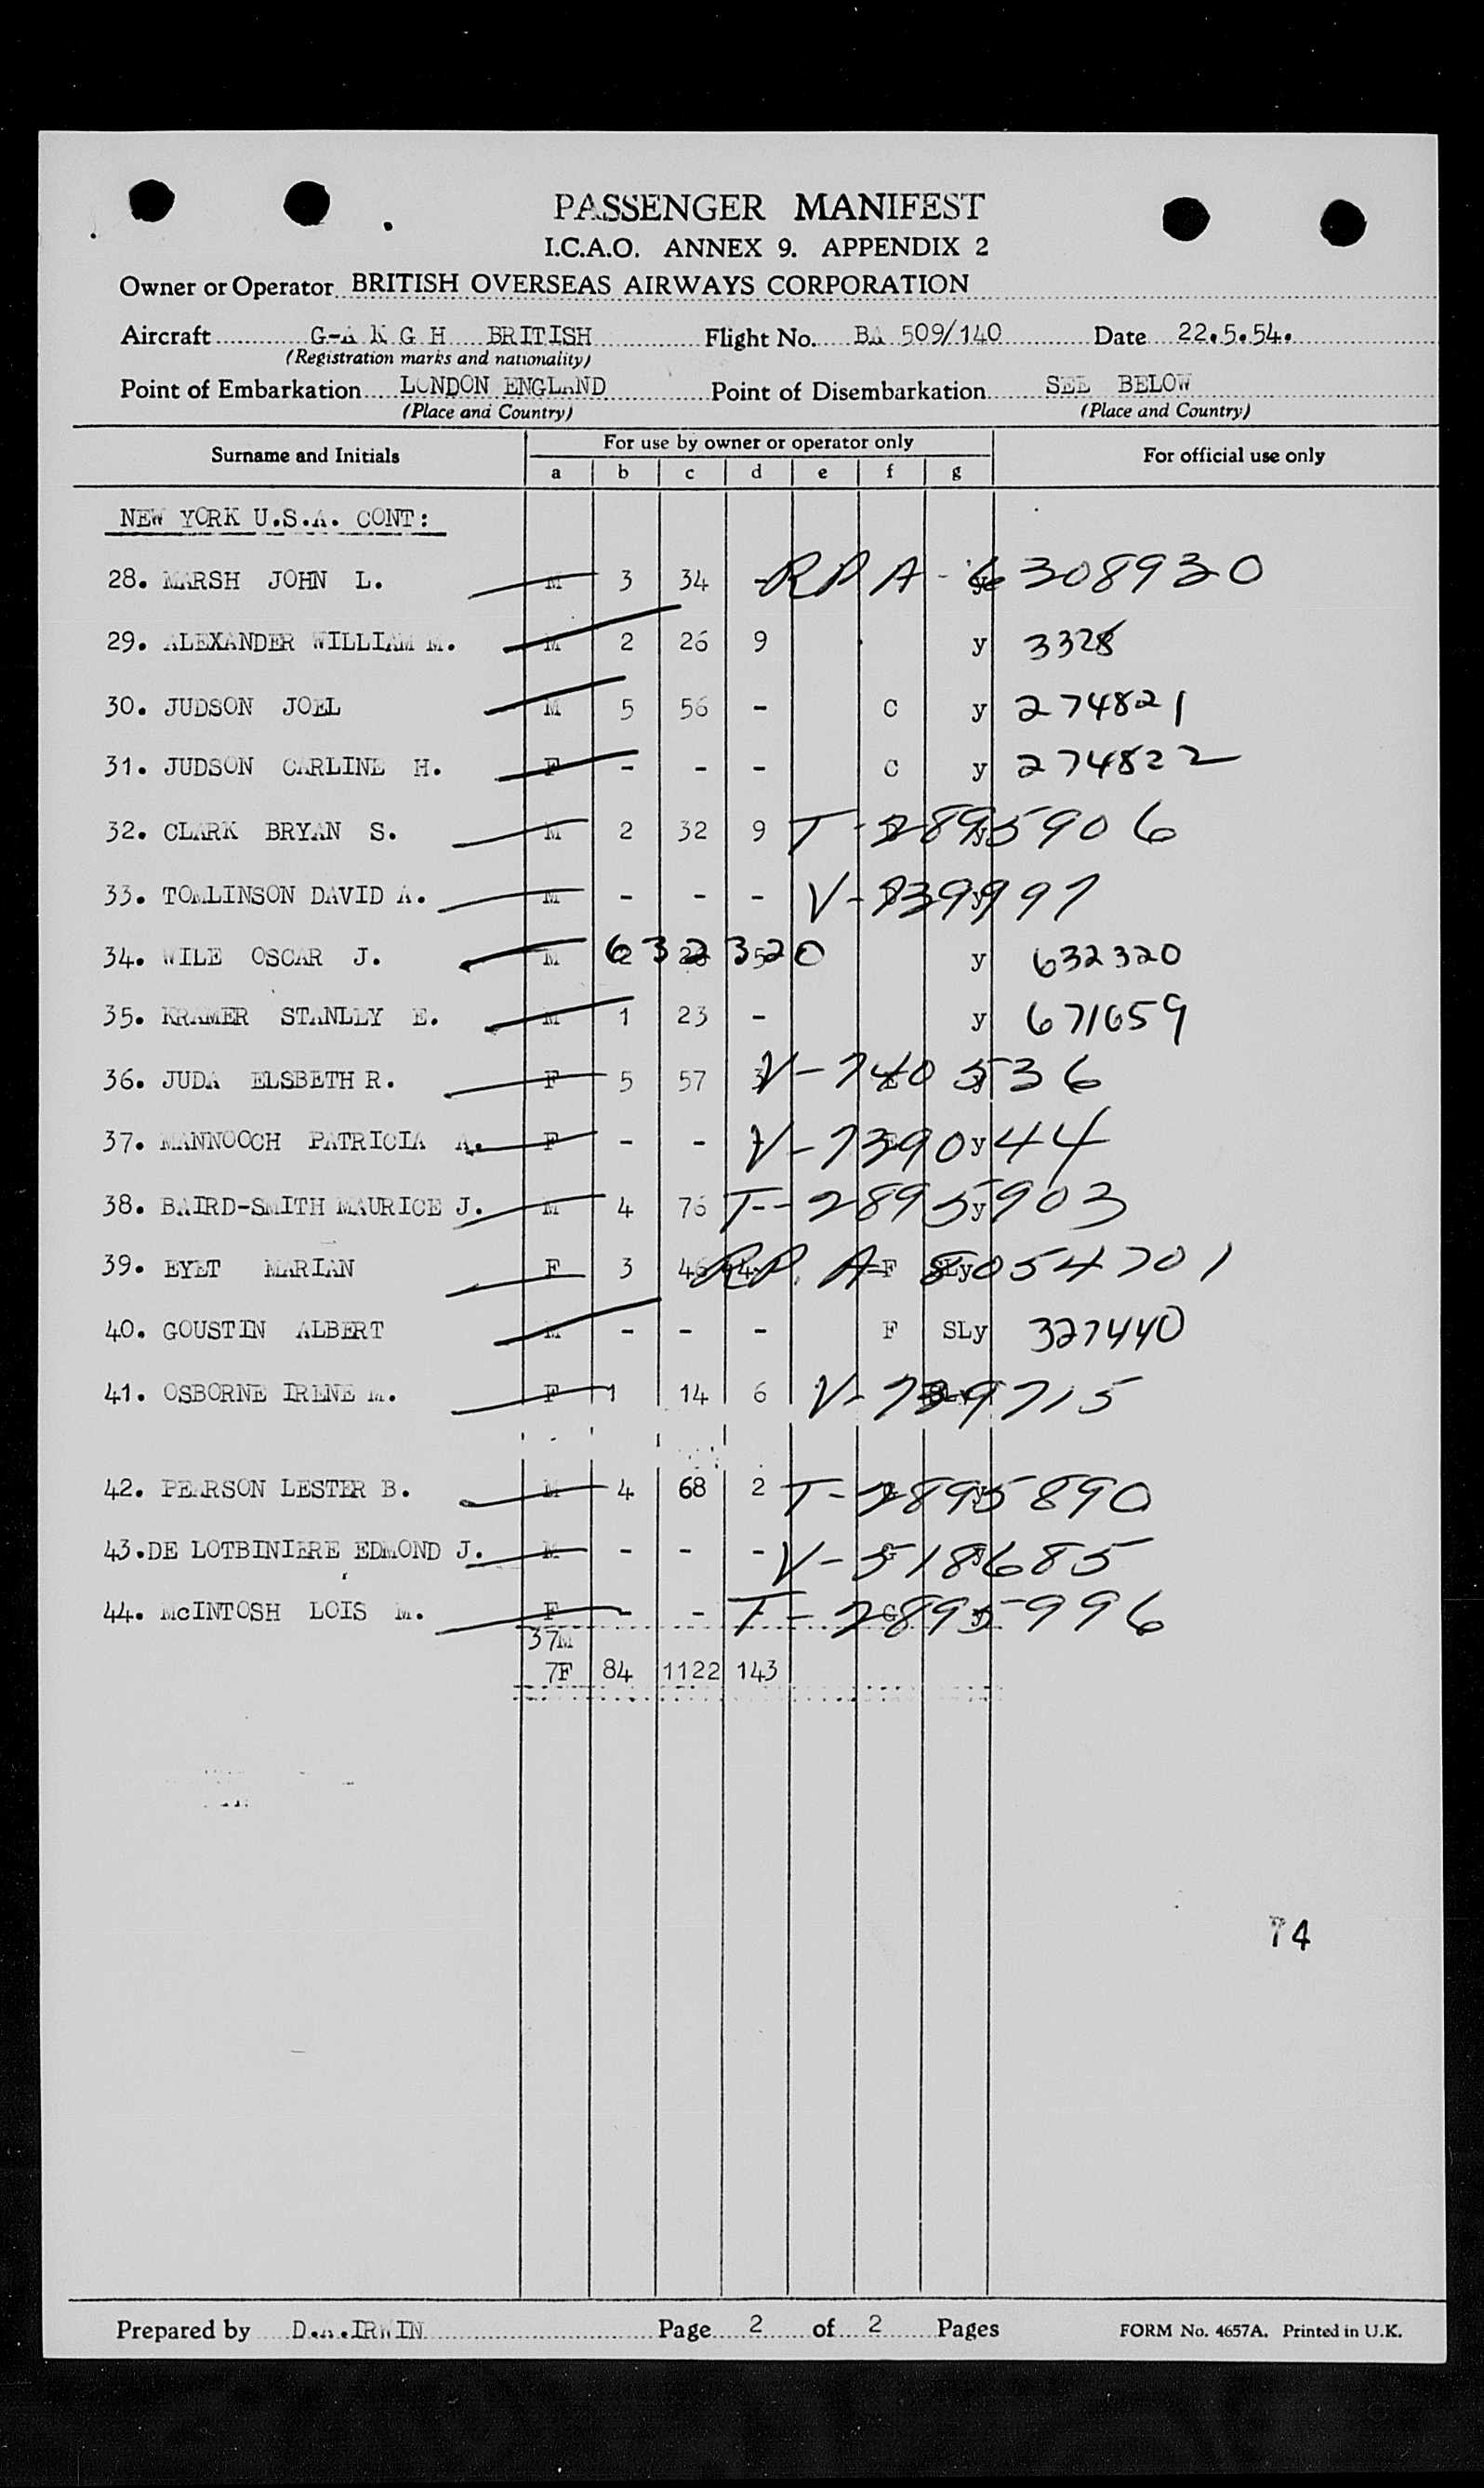 PASSENGER MANIFEST
I.C.A.O. ANNEX 9. APPENDIX 2
Owner or Operator BRITISH OVERSEAS AIRWAYS CORPORATION
Aircraft G-A K G H BRITISH Flight No. BA 509/140 Date 22.5.54.
(Registration marks and nationality)
Point of Embarkation LONDON ENGLAND Point of Disembarkation SEE BELOW
(Place and Country) (Place and Country)
Surname and Initials For use by owner or operator only For official use only
a b c d e f g
NEW YORK U.S.A. CONT:
28. MARSH JOHN L. M 3 34 - RPA - 6308930
29. ALEXANDER WILLIAM M. M 2 26 9 y 3328
30. JUDSON JOEL M 5 56 - C y 274821
31. JUDSON CARLINE H. F - - - C y 274822
32. CLARK BRYAN S. M 2 32 9 T-2895906
33. TOMLINSON DAVID A. M - - - V-739997
34. WILE OSCAR J. M 632320 y 632320
35. KRAMER STANLEY E. M 1 23 - y 671659
36. JUDA ELSBETH R. F 5 57 3 V-740536
37. MANNOOCH PATRICIA A. F - - V-7390y44
38. BAIRD-SMITH MAURICE J. M 4 76 T-2895y903
39. EYET MARIAN F 3 46 4 RP. A F SLy 8054701
40. GOUSTIN ALBERT M - - - F SLy 327440
41. OSBORNE IRENE M. F 1 14 6 V-739715
42. PEARSON LESTER B. M 4 68 2 T-2895890
43.DE LOTBINIERE EDMOND J. M - - - V-518685
44. McINTOSH LOIS M. F - - T-2895996
37M
7F 84 1122 143
74
Prepared by D.A.IRWIN Page 2 of 2 Pages FORM No. 4657A. Printed in U.K.